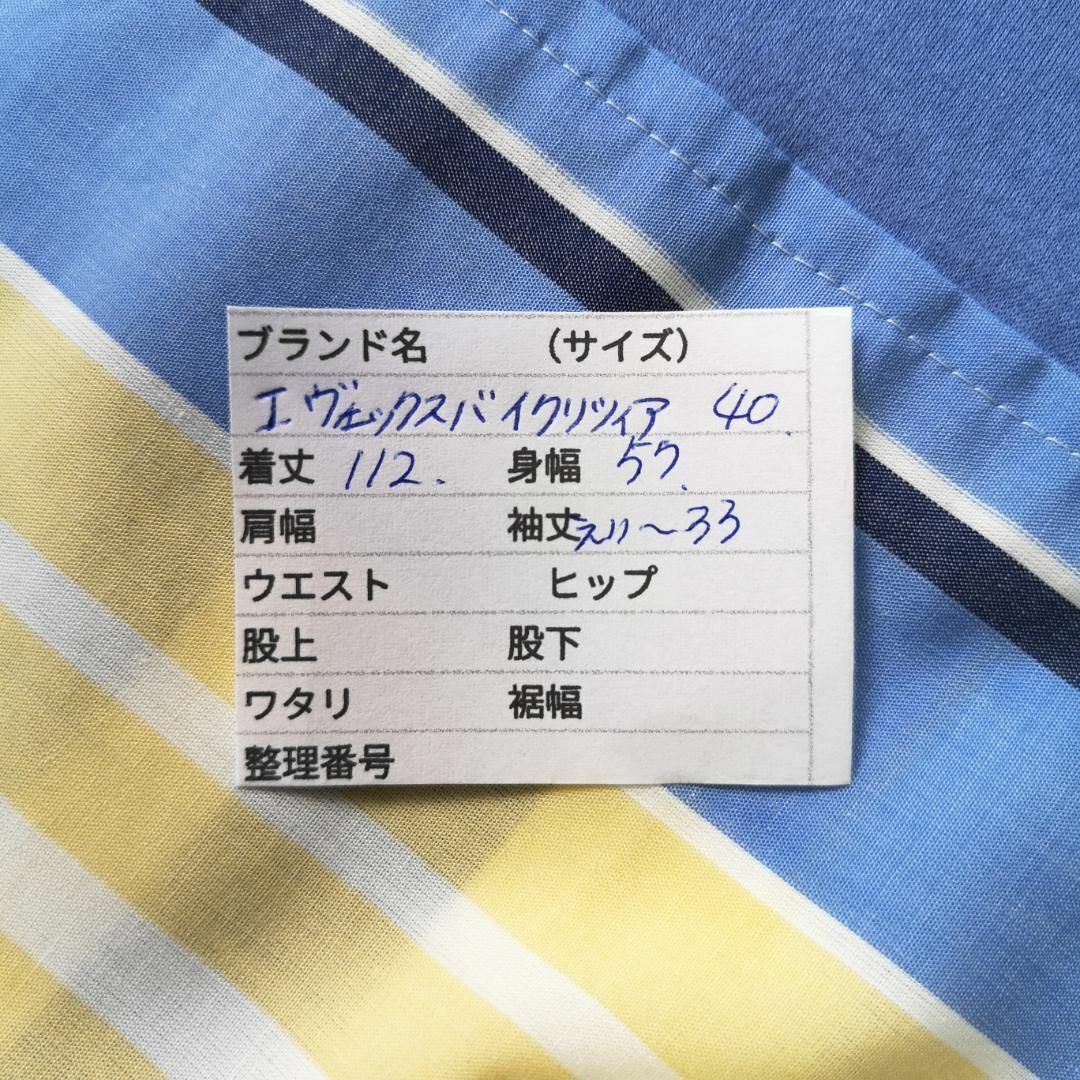 ブランド名 （サイズ）
エヴェックスバイクリツィア 40.
着丈 112. 身幅 57.
肩幅 袖丈えり〜33
ウエスト ヒップ
股上 股下
ワタリ 裾幅
整理番号